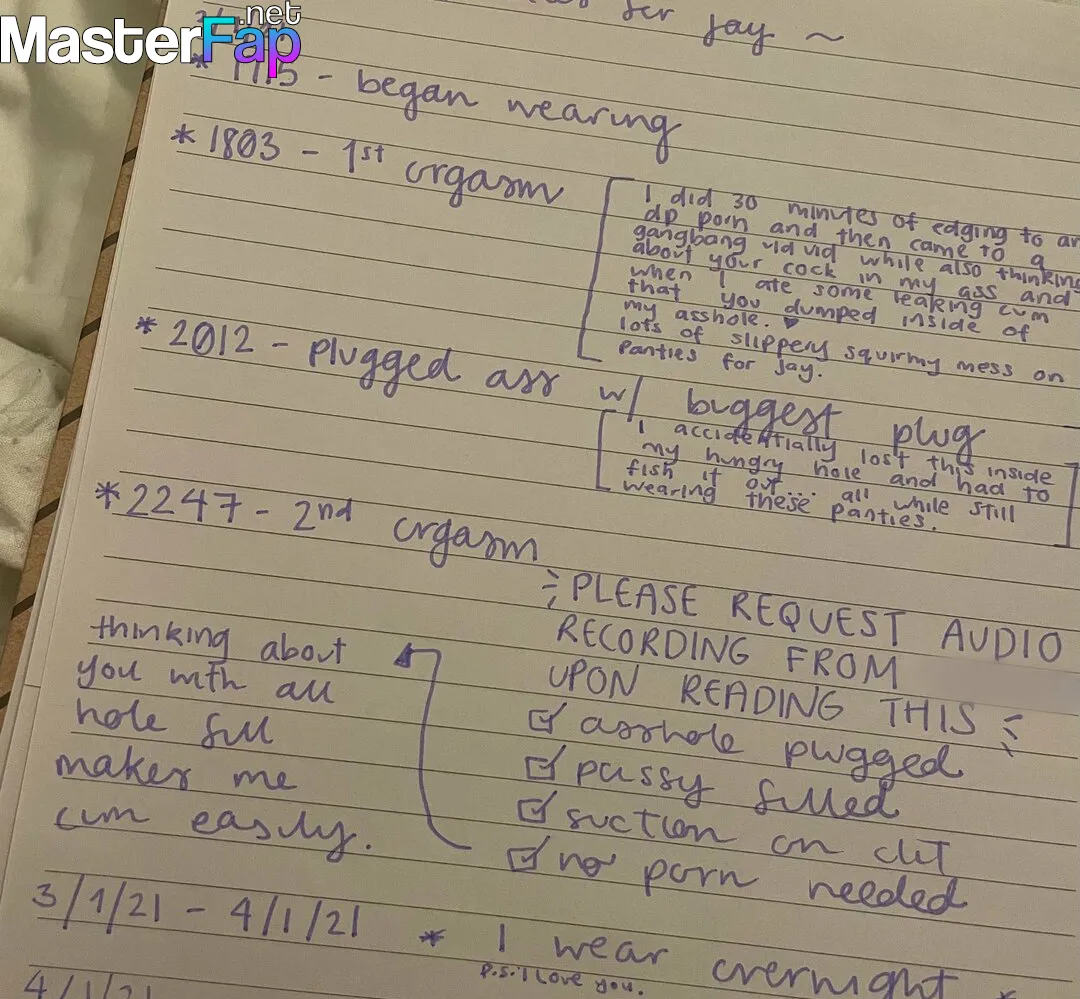 MasterFap.net
for Jay ~
- began wearing
* 1803 - 1st orgasm
I did 30 minutes of edging to an
dp porn and then came to a
gangbang vid vid while also thinking
about your cock in my ass and
when I ate some leaking cum
that you dumped inside of
my asshole. ♥
lots of slippery squirmy mess on
panties for Jay.
* 2012 - plugged ass w/ biggest plug
I accidentially lost this inside
my hungry hole and had to
fish it out... all while still
wearing these panties.
* 2247 - 2nd orgasm
PLEASE REQUEST AUDIO
RECORDING FROM
UPON READING THIS
☑ asshole plugged
☑ pussy filled
☑ suction on clit
☑ no porn needed
thinking about
you with all
hole full
makes me
cum easily.
3/1/21 - 4/1/21 * I wear overnight *
p.s. I love you.
4/1/21